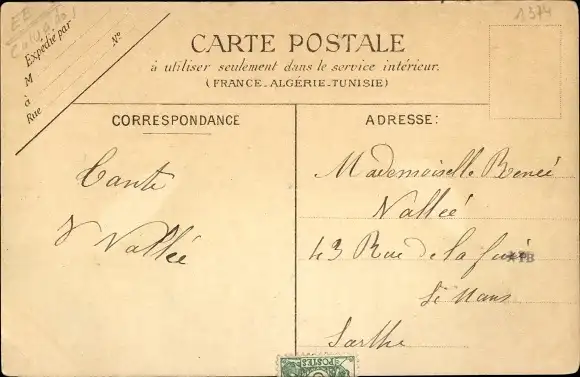 1374
Expédié par
M
à
Rue
N°
CARTE POSTALE
à utiliser seulement dans le service intérieur.
(FRANCE-ALGÉRIE-TUNISIE)
CORRESPONDANCE
Tante
Vallée
ADRESSE:
Mademoiselle Renée
Vallée
43 Rue de la
Le Mans
Sarthe
POSTES